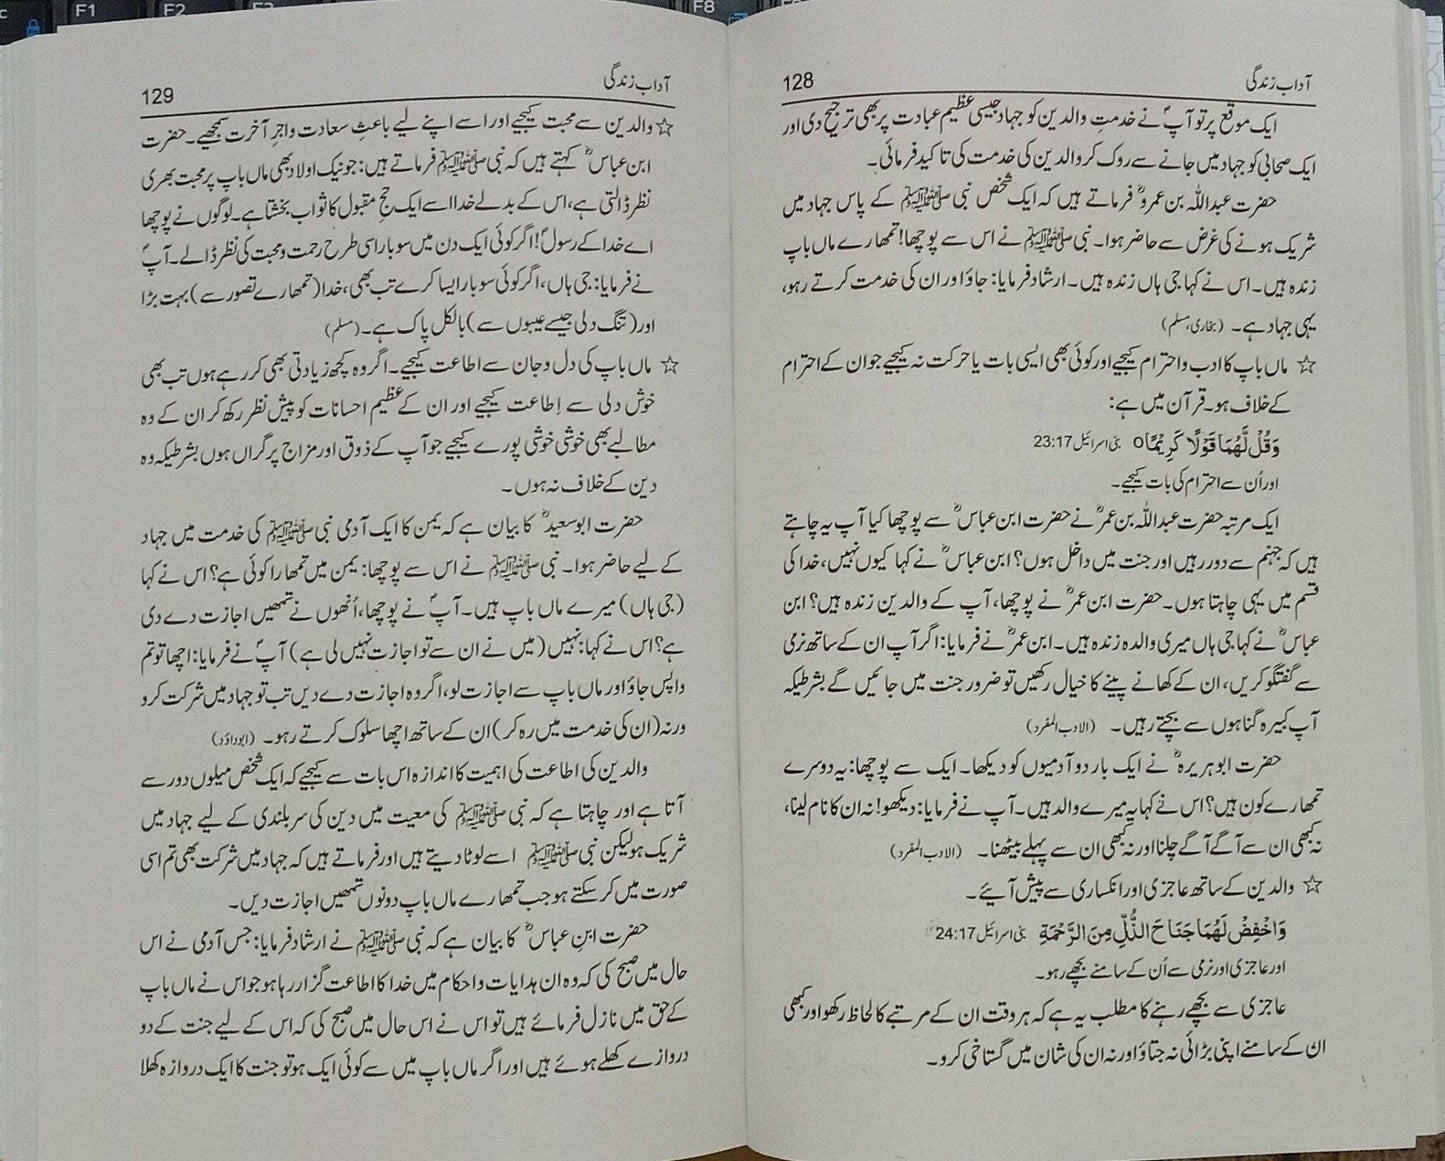 آداب زندگی
128
ایک موقع پر تو آپؐ نے خدمتِ والدین کو جہاد جیسی عظیم عبادت پر بھی ترجیح دی اور
ایک صحابی کو جہاد میں جانے سے روک کر والدین کی خدمت کی تاکید فرمائی۔
حضرت عبداللہ بن عمروؓ فرماتے ہیں کہ ایک شخص نبی ﷺ کے پاس جہاد میں
شریک ہونے کی غرض سے حاضر ہوا۔ نبی ﷺ نے اس سے پوچھا! تمھارے ماں باپ
زندہ ہیں۔ اس نے کہا جی ہاں زندہ ہیں۔ ارشاد فرمایا: جاؤ اور ان کی خدمت کرتے رہو،
یہی جہاد ہے۔ (بخاری، مسلم)
☆ ماں باپ کا ادب و احترام کیجیے اور کوئی بھی ایسی بات یا حرکت نہ کیجیے جو ان کے احترام
کے خلاف ہو۔ قرآن میں ہے:
وَقُلْ لَّهُمَا قَوْلًا كَرِيْمًا o بنی اسرائیل 23:17
اور اُن سے احترام کی بات کیجیے۔
ایک مرتبہ حضرت عبداللہ بن عمرؓ نے حضرت ابن عباسؓ سے پوچھا کیا آپ یہ چاہتے
ہیں کہ جہنم سے دور رہیں اور جنت میں داخل ہوں؟ ابن عباسؓ نے کہا کیوں نہیں، خدا کی
قسم میں یہی چاہتا ہوں۔ حضرت ابن عمرؓ نے پوچھا، آپ کے والدین زندہ ہیں؟ ابن
عباسؓ نے کہا جی ہاں میری والدہ زندہ ہیں۔ ابن عمرؓ نے فرمایا: اگر آپ ان کے ساتھ نرمی
سے گفتگو کریں، ان کے کھانے پینے کا خیال رکھیں تو ضرور جنت میں جائیں گے بشرطیکہ
آپ کبیرہ گناہوں سے بچتے رہیں۔ (الادب المفرد)
حضرت ابو ہریرہؓ نے ایک بار دو آدمیوں کو دیکھا۔ ایک سے پوچھا: یہ دوسرے
تمھارے کون ہیں؟ اس نے کہا یہ میرے والد ہیں۔ آپ نے فرمایا: دیکھو! نہ ان کا نام لینا،
نہ کبھی ان سے آگے آگے چلنا اور نہ کبھی ان سے پہلے بیٹھنا۔ (الادب المفرد)
☆ والدین کے ساتھ عاجزی اور انکساری سے پیش آئیے۔
وَاخْفِضْ لَهُمَا جَنَاحَ الذُّلِّ مِنَ الرَّحْمَةِ بنی اسرائیل 24:17
اور عاجزی اور نرمی سے اُن کے سامنے بچھے رہو۔
عاجزی سے بچھے رہنے کا مطلب یہ ہے کہ ہر وقت ان کے مرتبے کا لحاظ رکھو اور کبھی
ان کے سامنے اپنی بڑائی نہ جتاؤ اور نہ ان کی شان میں گستاخی کرو۔
آداب زندگی
129
☆ والدین سے محبت کیجیے اور اسے اپنے لیے باعثِ سعادت و اجرِ آخرت سمجھیے۔ حضرت
ابن عباسؓ کہتے ہیں کہ نبی ﷺ فرماتے ہیں: جو نیک اولاد بھی ماں باپ پر محبت بھری
نظر ڈالتی ہے، اس کے بدلے خدا اسے ایک حج مقبول کا ثواب بخشتا ہے۔ لوگوں نے پوچھا
اے خدا کے رسولؐ! اگر کوئی ایک دن میں سو بار اسی طرح رحمت و محبت کی نظر ڈالے۔ آپؐ
نے فرمایا: جی ہاں، اگر کوئی سو بار ایسا کرے تب بھی، خدا (تمھارے تصور سے) بہت بڑا
اور (تنگ دلی جیسے عیبوں سے) بالکل پاک ہے۔ (مسلم)
☆ ماں باپ کی دل و جان سے اطاعت کیجیے۔ اگر وہ کچھ زیادتی بھی کر رہے ہوں تب بھی
خوش دلی سے اِطاعت کیجیے اور ان کے عظیم احسانات کو پیش نظر رکھ کر ان کے وہ
مطالبے بھی خوشی خوشی پورے کیجیے جو آپ کے ذوق اور مزاج پر گراں ہوں بشرطیکہ وہ
دین کے خلاف نہ ہوں۔
حضرت ابو سعیدؓ کا بیان ہے کہ یمن کا ایک آدمی نبی ﷺ کی خدمت میں جہاد
کے لیے حاضر ہوا۔ نبی ﷺ نے اس سے پوچھا: یمن میں تمھارا کوئی ہے؟ اس نے کہا
(جی ہاں) میرے ماں باپ ہیں۔ آپؐ نے پوچھا، اُنھوں نے تمھیں اجازت دے دی
ہے؟ اس نے کہا: نہیں (میں نے ان سے تو اجازت نہیں لی ہے) آپؐ نے فرمایا: اچھا تو تم
واپس جاؤ اور ماں باپ سے اجازت لو، اگر وہ اجازت دے دیں تب تو جہاد میں شرکت کرو
ورنہ (ان کی خدمت میں رہ کر) ان کے ساتھ اچھا سلوک کرتے رہو۔ (ابوداؤد)
والدین کی اطاعت کی اہمیت کا اندازہ اس بات سے کیجیے کہ ایک شخص میلوں دور سے
آتا ہے اور چاہتا ہے کہ نبی ﷺ کی معیت میں دین کی سربلندی کے لیے جہاد میں
شریک ہو لیکن نبی ﷺ اسے لوٹا دیتے ہیں اور فرماتے ہیں کہ جہاد میں شرکت بھی تم اسی
صورت میں کر سکتے ہو جب تمھارے ماں باپ دونوں تمھیں اجازت دیں۔
حضرت ابنِ عباسؓ کا بیان ہے کہ نبی ﷺ نے ارشاد فرمایا: جس آدمی نے اس
حال میں صبح کی کہ وہ ان ہدایات و احکام میں خدا کا اطاعت گزار رہا ہو جو اس نے ماں باپ
کے حق میں نازل فرمائے ہیں تو اس نے اس حال میں صبح کی کہ اس کے لیے جنت کے دو
دروازے کھلے ہوئے ہیں اور اگر ماں باپ میں سے کوئی ایک ہو تو جنت کا ایک دروازہ کھلا
F1
F2
F3
F8